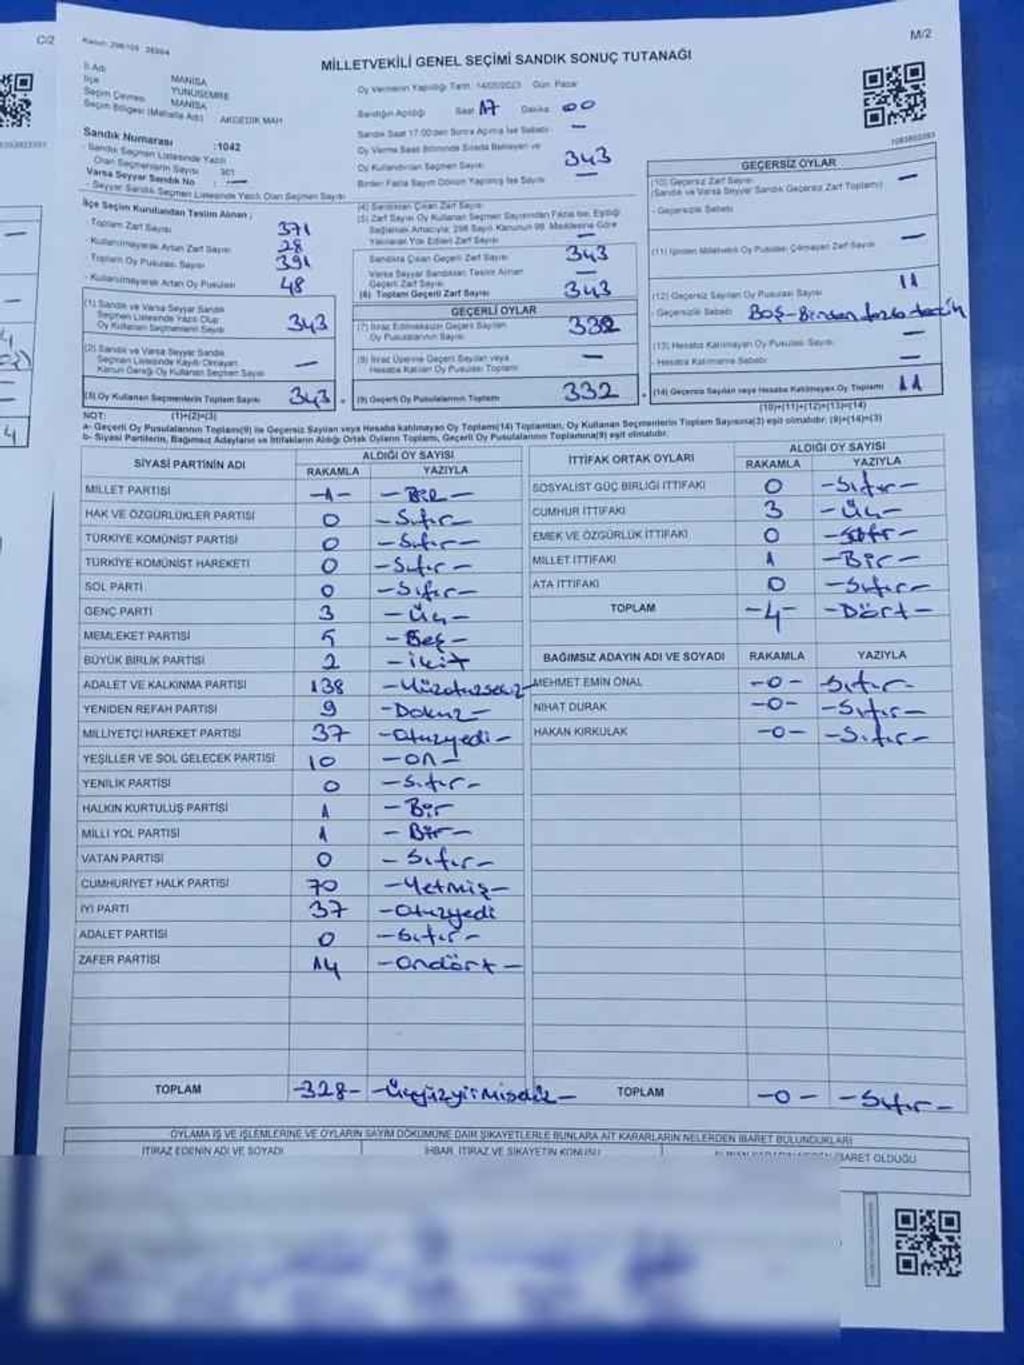 C/2
M/2
MİLLETVEKİLİ GENEL SEÇİMİ SANDIK SONUÇ TUTANAĞI
İl Adı MANİSA
İlçe YUNUSEMRE
Seçim Çevresi MANİSA
Seçim Bölgesi (Mahalle Adı) AKGEDİK MAH
Sandık Numarası :1042
- Sandık Seçmen Listesinde Yazılı
Olan Seçmenlerin Sayısı
Varsa Seyyar Sandık No : —
- Seyyar Sandık Seçmen Listesinde Yazılı Olan Seçmen Sayısı
Oy Vermenin Yapıldığı Tarih: 14/05/2023 Gün: Pazar
Sandığın Açıldığı Saat 17 Dakika 00
Sandık Saat 17:00'den Sonra Açılmış İse Sebebi —
Oy Kullandırılan Seçmen Sayısı 343
Birden Fazla Sayım Döküm Yapılmış İse Sayısı —
İlçe Seçim Kurulundan Teslim Alınan :
- Toplam Zarf Sayısı 371
- Kullanılmayarak Artan Zarf Sayısı 28
- Toplam Oy Pusulası Sayısı 391
- Kullanılmayarak Artan Oy Pusulası 48
(1) Sandık ve Varsa Seyyar Sandık
Seçmen Listesinde Yazılı Olup
Oy Kullanan Seçmenlerin Sayısı 343
(2) Sandık ve Varsa Seyyar Sandık
Seçmen Listesinde Kayıtlı Olmayan
Kanun Gereği Oy Kullanan Seçmen Sayısı —
(3) Oy Kullanan Seçmenlerin Toplam Sayısı 343
(4) Sandıktan Çıkan Zarf Sayısı
(5) Zarf Sayısı Oy Kullanan Seçmen Sayısından Fazla İse, Eşitliği
Sağlamak Amacıyla; 298 Sayılı Kanunun 98. Maddesine Göre
Yakılarak Yok Edilen Zarf Sayısı —
Sandıkta Çıkan Geçerli Zarf Sayısı 343
Varsa Seyyar Sandıktan Teslim Alınan
Geçerli Zarf Sayısı —
(6) Toplam Geçerli Zarf Sayısı 343
GEÇERLİ OYLAR
(7) İtiraz Edilmeksizin Geçerli Sayılan
Oy Pusulalarının Sayısı 332
(8) İtiraz Üzerine Geçerli Sayılan veya
Hesaba Katılan Oy Pusulası Toplamı —
(9) Geçerli Oy Pusulalarının Toplamı 332
GEÇERSİZ OYLAR
(10) Geçersiz Zarf Sayısı
(Sandık ve Varsa Seyyar Sandık Geçersiz Zarf Toplamı) —
- Geçersizlik Sebebi
(11) İçinden Milletvekili Oy Pusulası Çıkmayan Zarf Sayısı —
(12) Geçersiz Sayılan Oy Pusulası Sayısı 11
- Geçersizlik Sebebi Boş-Birden fazla tercih
(13) Hesaba Katılmayan Oy Pusulası Sayısı —
- Hesaba Katılmama Sebebi —
(14) Geçersiz Sayılan veya Hesaba Katılmayan Oy Toplamı 11
NOT: (1)+(2)=(3) (10)+(11)+(12)+(13)=(14)
a- Geçerli Oy Pusulalarının Toplamı(9) ile Geçersiz Sayılan veya Hesaba katılmayan Oy Toplamı(14) Toplamları, Oy Kullanan Seçmenlerin Toplam Sayısına(3) eşit olmalıdır. (9)+(14)=(3)
b- Siyasi Partilerin, Bağımsız Adayların ve İttifakların Aldığı Ortak Oyların Toplamı, Geçerli Oy Pusulalarının Toplamına(9) eşit olmalıdır.
SİYASİ PARTİNİN ADI ALDIĞI OY SAYISI
RAKAMLA YAZIYLA
MİLLET PARTİSİ -1- -Bir-
HAK VE ÖZGÜRLÜKLER PARTİSİ 0 -Sıfır-
TÜRKİYE KOMÜNİST PARTİSİ 0 -Sıfır-
TÜRKİYE KOMÜNİST HAREKETİ 0 -Sıfır-
SOL PARTİ 0 -Sıfır-
GENÇ PARTİ 3 -Üç-
MEMLEKET PARTİSİ 5 -Beş-
BÜYÜK BİRLİK PARTİSİ 2 -İki-
ADALET VE KALKINMA PARTİSİ 138 -Yüzotuzsekiz-
YENİDEN REFAH PARTİSİ 9 -Dokuz-
MİLLİYETÇİ HAREKET PARTİSİ 37 -Otuzyedi-
YEŞİLLER VE SOL GELECEK PARTİSİ 10 -on-
YENİLİK PARTİSİ 0 -Sıfır-
HALKIN KURTULUŞ PARTİSİ 1 -Bir
MİLLİ YOL PARTİSİ 1 -Bir-
VATAN PARTİSİ 0 -Sıfır-
CUMHURİYET HALK PARTİSİ 70 -Yetmiş-
İYİ PARTİ 37 -Otuzyedi
ADALET PARTİSİ 0 -Sıfır-
ZAFER PARTİSİ 14 -Ondört-
TOPLAM -328- -Üçyüzyirmisekiz-
İTTİFAK ORTAK OYLARI ALDIĞI OY SAYISI
RAKAMLA YAZIYLA
SOSYALİST GÜÇ BİRLİĞİ İTTİFAKI 0 -Sıfır-
CUMHUR İTTİFAKI 3 -Üç-
EMEK VE ÖZGÜRLÜK İTTİFAKI 0 -Sıfır-
MİLLET İTTİFAKI 1 -Bir-
ATA İTTİFAKI 0 -Sıfır-
TOPLAM -4- -Dört-
BAĞIMSIZ ADAYIN ADI VE SOYADI RAKAMLA YAZIYLA
MEHMET EMİN ÖNAL -0- Sıfır-
NİHAT DURAK -0- -Sıfır-
HAKAN KIRKULAK -0- -Sıfır-
TOPLAM -0- -Sıfır-
OYLAMA İŞ VE İŞLEMLERİNE VE OYLARIN SAYIM DÖKÜMÜNE DAİR ŞİKAYETLERLE BUNLARA AİT KARARLARIN NELERDEN İBARET BULUNDUKLARI
İTİRAZ EDENİN ADI VE SOYADI İHBAR, İTİRAZ VE ŞİKAYETİN KONUSU İBARET OLDUĞU